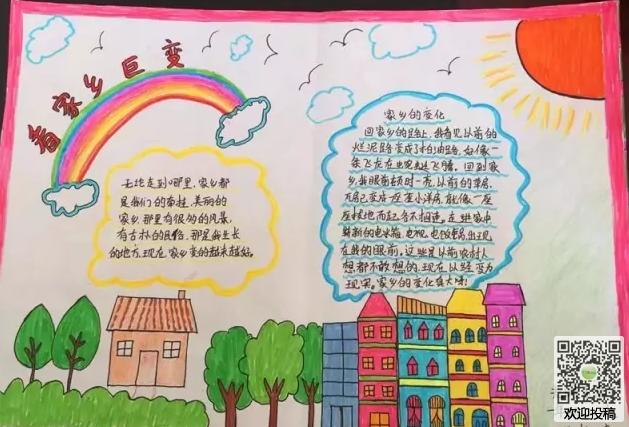 看家乡巨变
无论走到哪里,家乡都
是我们的牵挂,美丽的
家乡,那里有很多的风景,
有古朴的民俗,那是我生长
的地方,现在家乡变的越来越好。
家乡的变化
回家乡的路上,我看见以前的
烂泥路变成了柏油路,好像一
条飞龙在出现腾飞。回到家
乡,我眼前顿时一亮,以前的草房、
瓦房已变成一座座小洋房,就像一座
座拔地而起
走进家中
崭新的电冰箱、电视、电饭锅出现
在我的眼前。这些是以前农村人
想都不敢想的,现在以经变为
现实。家乡的变化真大呀!
欢迎投稿